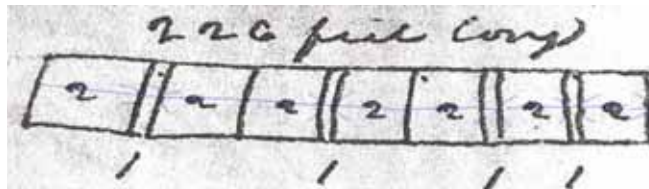 226 feet long
2 2 2 2 2 2 2
1 1 1 1